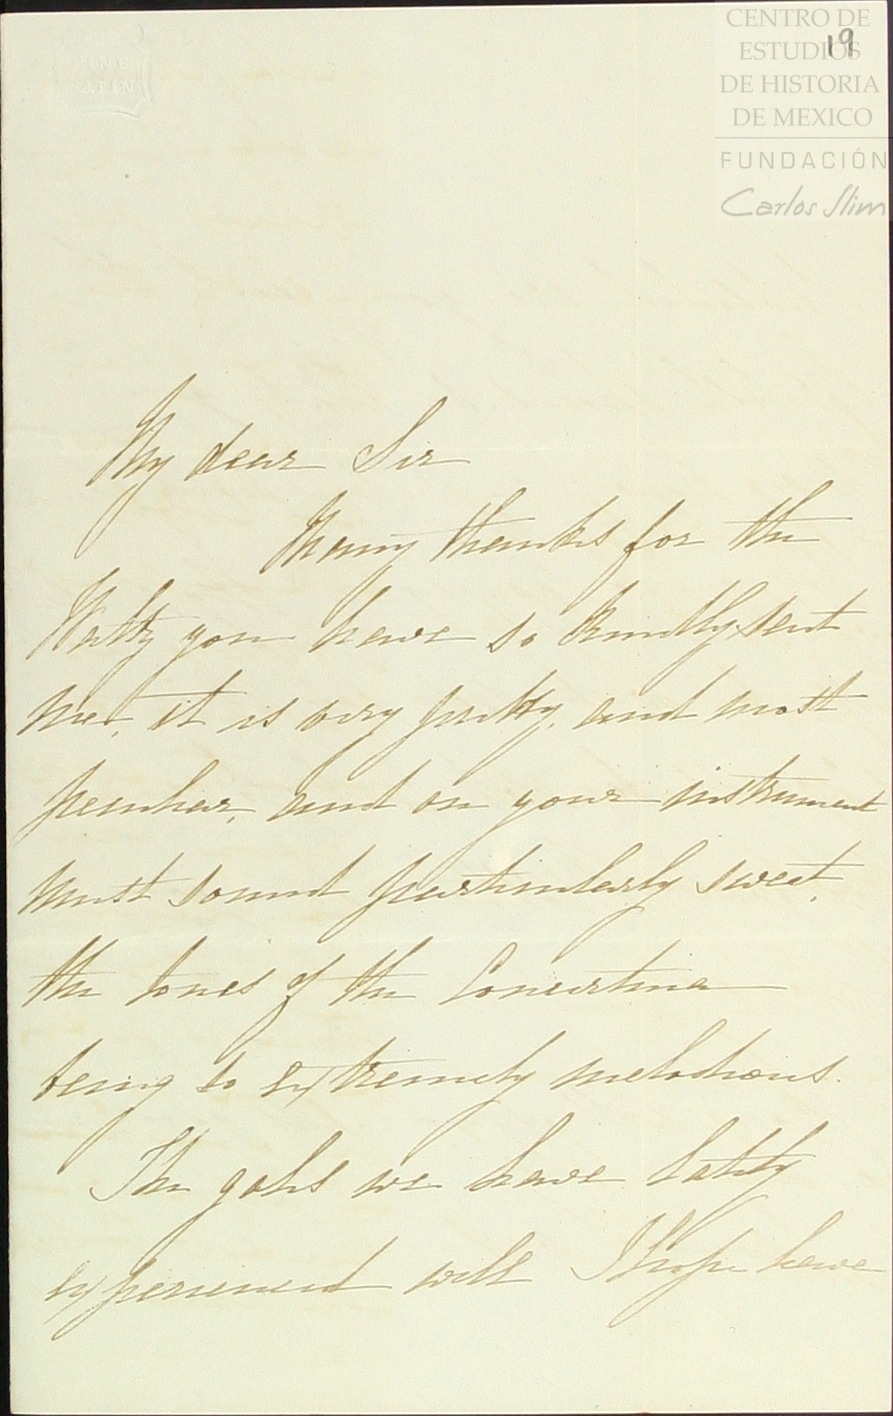 CENTRO DE
ESTUDIOS
DE HISTORIA
DE MEXICO
FUNDACIÓN
Carlos Slim
19
My dear Sir
Many thanks for the
Waltz you have so kindly sent
me, it is very pretty, and most
peculiar, and on your instrument
must sound particularly sweet,
the tones of the Concertina
being so extremely melodious.
The gales we have lately
experienced will I hope have